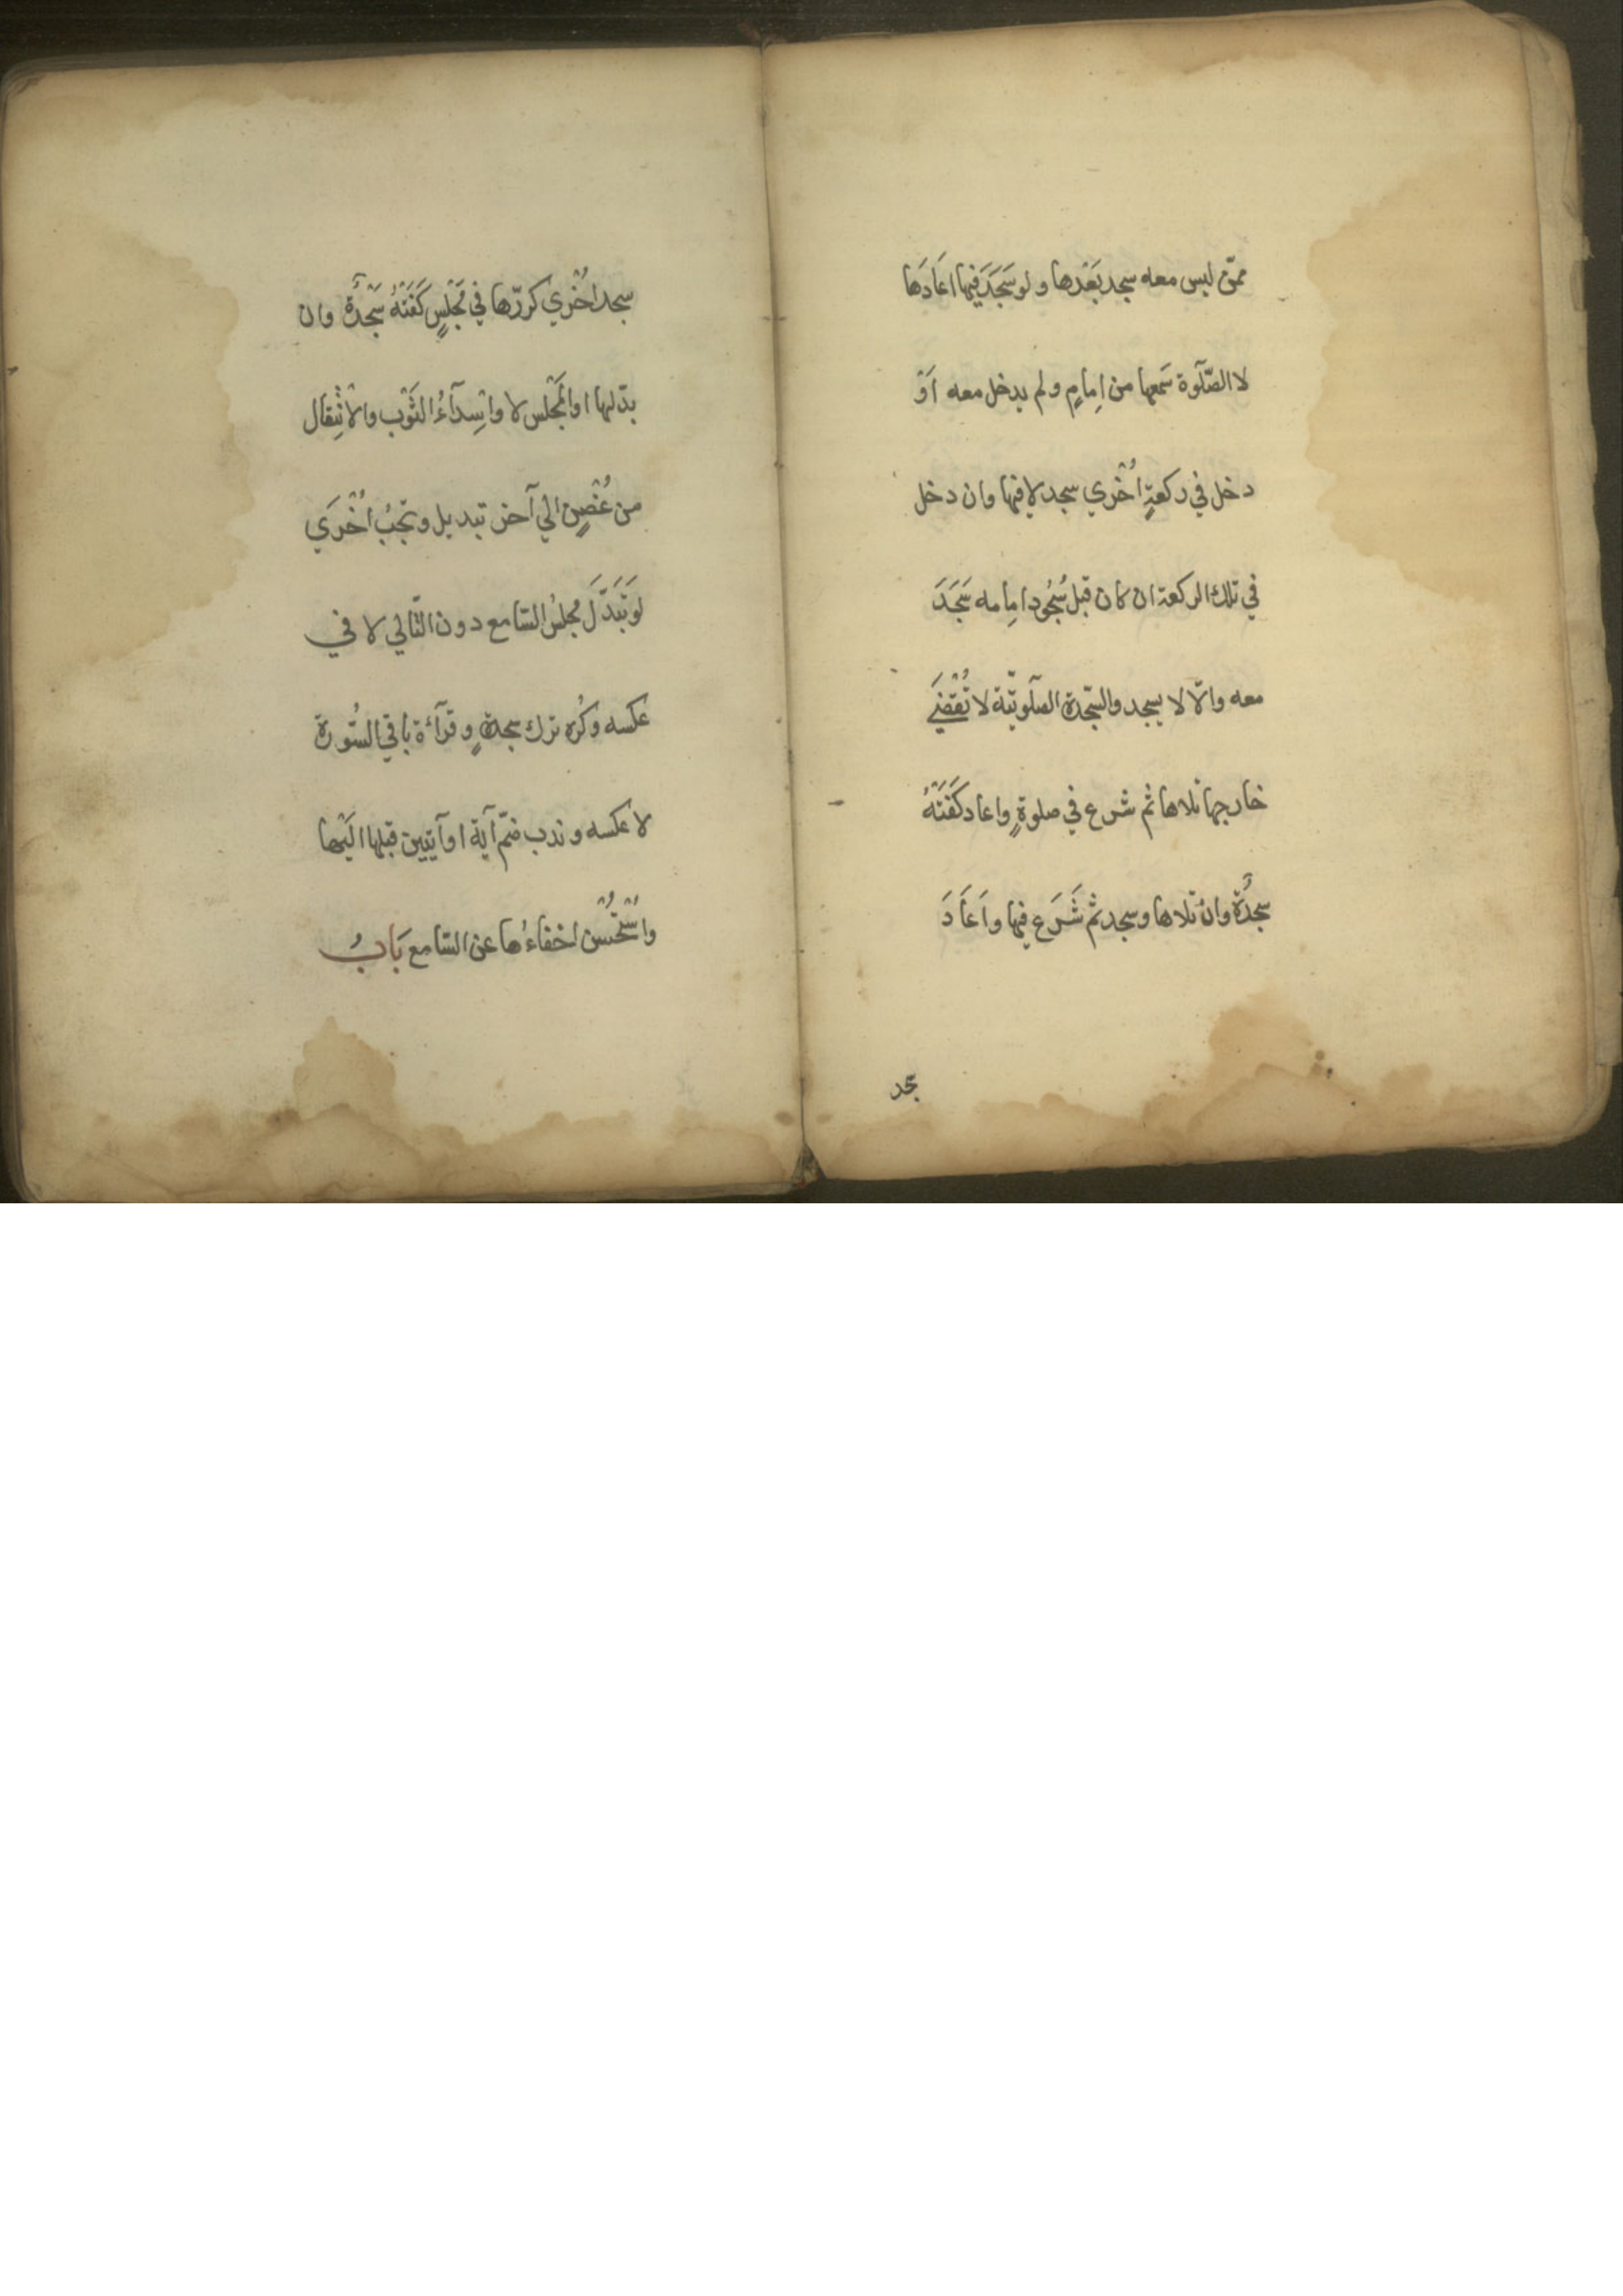 ممّن ليس معه سجد بَعْدها ولو سَجَدَ فيها اعَادَها
لا الصّلوة سَمعها من اِمامٍ ولم يدخل معه اَوْ
دخل في ركعةٍ اُخْري سجد لا فيها وان دخل
في تلك الركعة ان كان قبل سُجُود اِمامه سَجَدَ
معه والّا لا يسجد والسّجدة الصّلوتيّة لا تُقْضَي
خارجها تلاها ثم شرع في صلوةٍ واعاد كَفَتْهُ
سجدَةٌ وانْ تلاها وسجد ثم شَرَع فيها واَعَادَ
سجد
سجد اُخْري كرّرها في مَجْلسٍ كَفَتْهُ سَجْدَةٌ وان
بدّلها او المَجْلس لا واِسْدآءُ الثَوْب والاْنْتِقال
من غُصْنٍ الي آخر تبديل وتجبُ اُخْرَي
لو تَبَدَّلَ مجلسُ السّامع دون التّالي لا في
عكسه وكُره ترك سجدةٍ وقرآءة باقي السُّورة
لا عكسه وندب ضمّ آية او آيتين قبلها اليْها
واسْتُحْسن اخفاءُها عن السّامع بَابُ